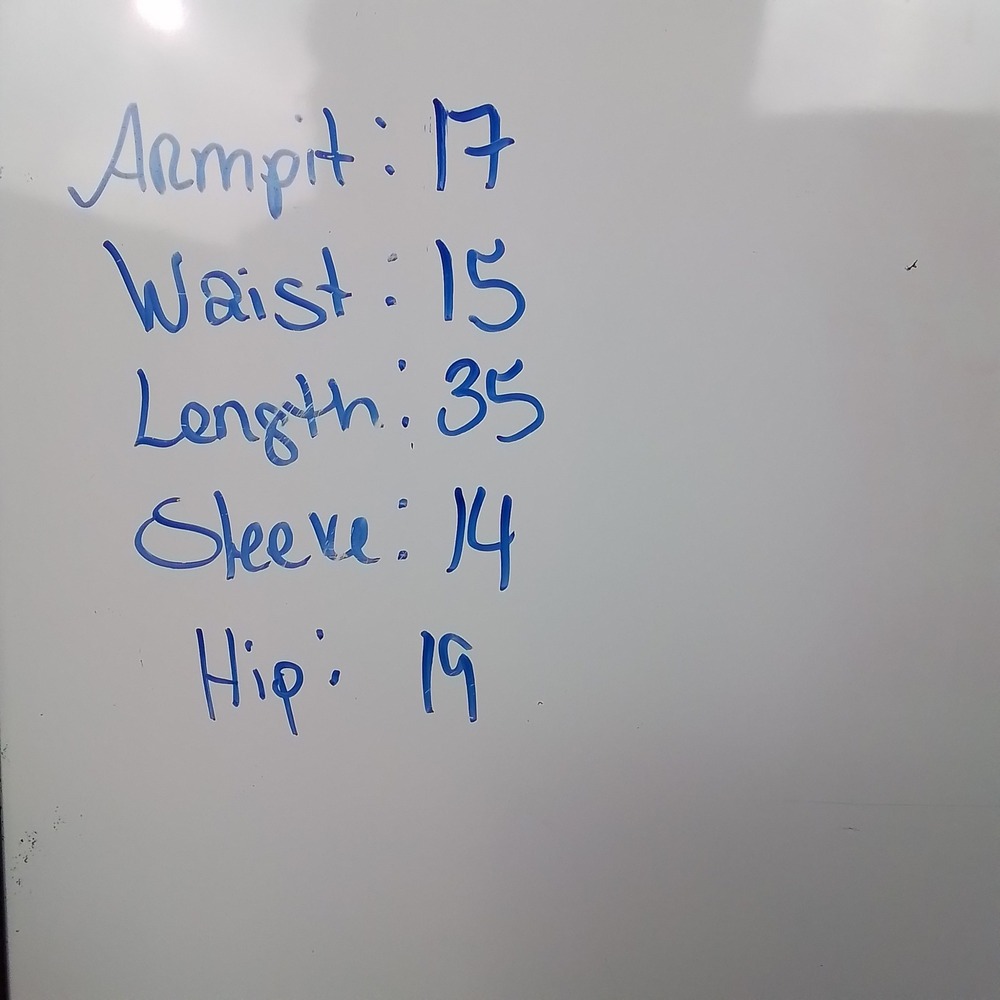 Armpit: 17
Waist: 15
Length: 35
Sleeve: 14
Hip: 19